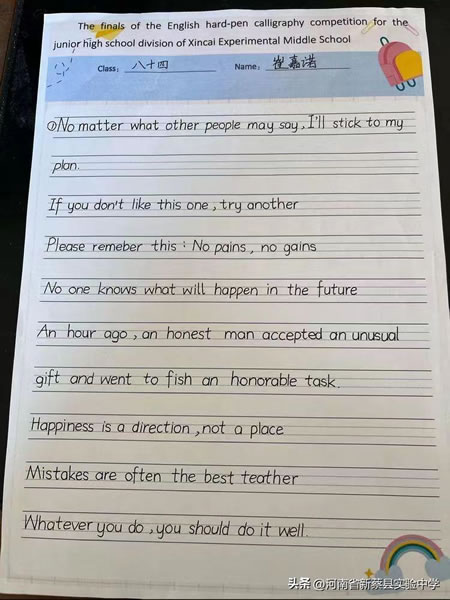 The finals of the English hard-pen calligraphy competition for the
junior high school division of Xincai Experimental Middle School
Class: 八十四 Name: 崔嘉诺
①No matter what other people may say, I'll stick to my
plan.
If you don't like this one, try another
Please remeber this: No pains, no gains
No one knows what will happen in the future
An hour ago, an honest man accepted an unusual
gift and went to fish an honorable task.
Happiness is a direction, not a place
Mistakes are often the best teather
Whatever you do, you should do it well.
头条 @河南省新蔡县实验中学